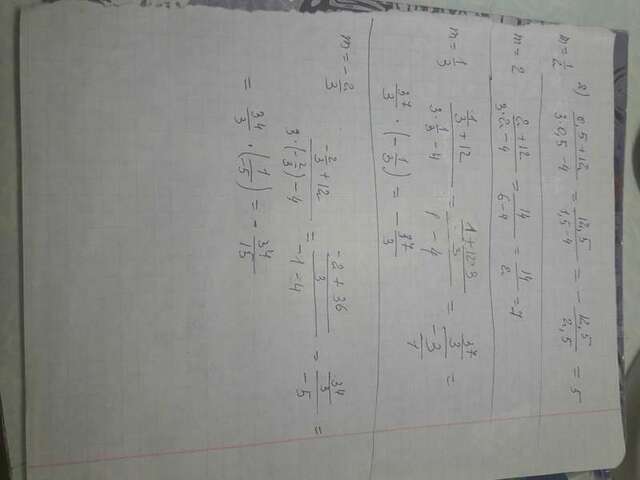 2)
m = 1/2 (0,5+12)/(3·0,5-4) = (12,5)/(1,5-4) = - 12,5/2,5 = 5
m = 2 (2+12)/(3·2-4) = 14/(6-4) = 14/2 = 7
m = 1/3 (1/3+12)/(3·1/3-4) = ((1+12·3)/3)/(1-4) = (37/3)/(-3/1) =
37/3 · (-1/3) = - 37/3
m = - 2/3 (-2/3+12)/(3·(-2/3)-4) = ((-2+36)/3)/(-1-4) = (34/3)/(-5) =
= 34/3 · (1/5) = - 34/15